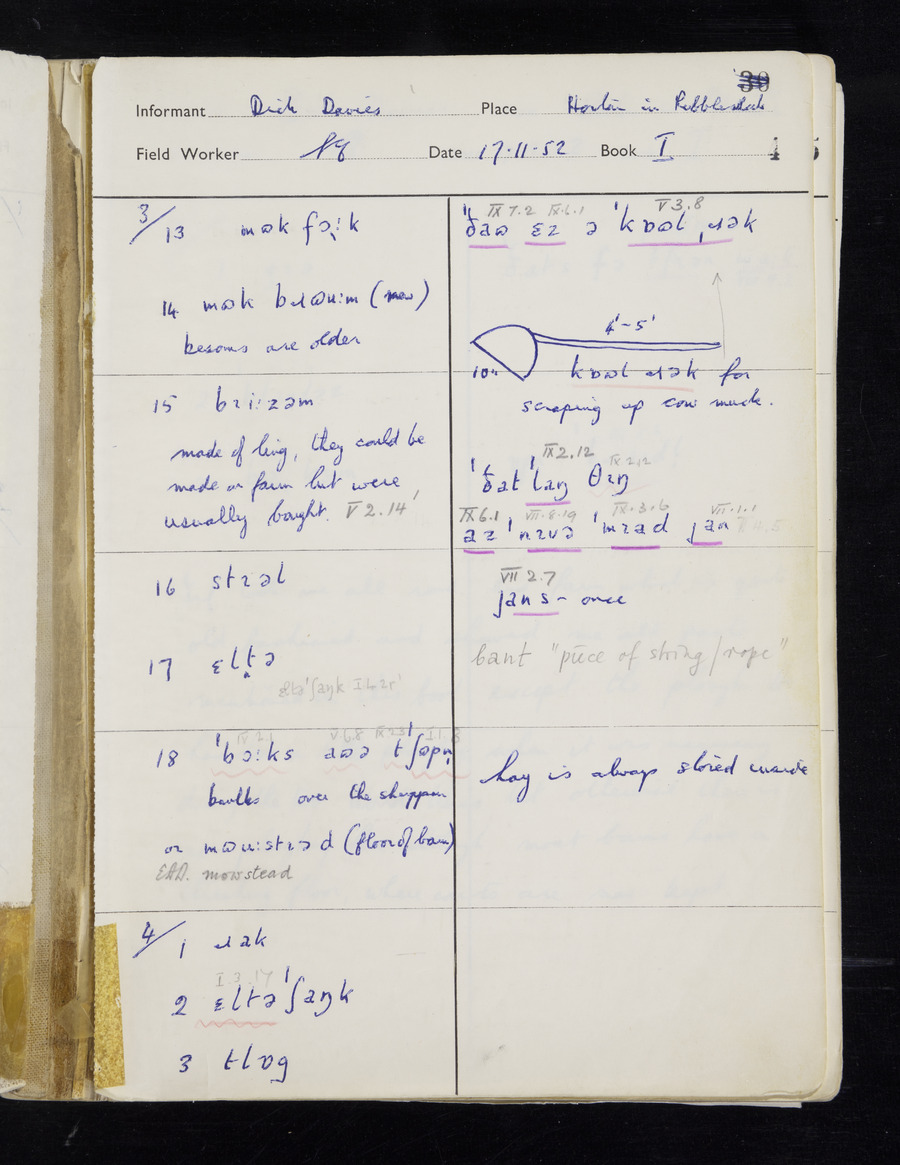 30
Informant Dick Davies Place Horton in Ribblesdale
Field Worker Date 17·11·52 Book I
3/13 mʊk fɔ̢ːk
14 mʊk bɹəuːm (new)
besoms are older
15 bɪiːzəm
made of ling, they could be
made on farm but were
usually bought. V 2.14'
16 stɪəl
17 ɛltə
ɛltə'ʃaŋk
V 6.8
18 'bɔːks aʊə t'ʃʊpn̩
baulks over the shuppon
or məuːstɪəd (floor of barn)
EDD. mowstead
4/1 ɹak
I.3.17
2 ɛltə'ʃaŋk
3 tlɒg
IX 7.2 IX.6.1 V 3.8
"ðaʊ ɛz ə 'kɒʊl ˌɹək
4'-5'
10"
kɒʊl ɹək for
scraping up cow muck.
IX 2.12 IX 2.12
'ðat 'laŋ θɪŋ
IX 6.1 VII.8.19 IX.3.6 VII.1.1
az 'nɪvə 'mɪad jan
VII 2.7
jans - once
bant "piece of string/rope"
hay is always stored inside